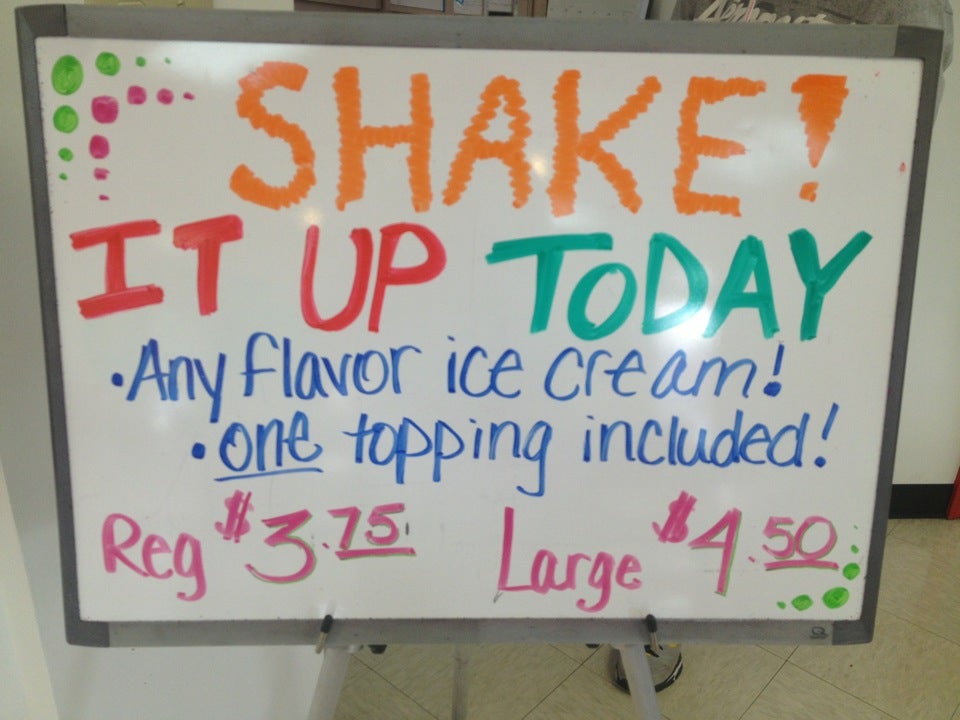 SHAKE!
IT UP TODAY
• Any flavor ice cream!
• one topping included!
Reg $3.75 Large $4.50